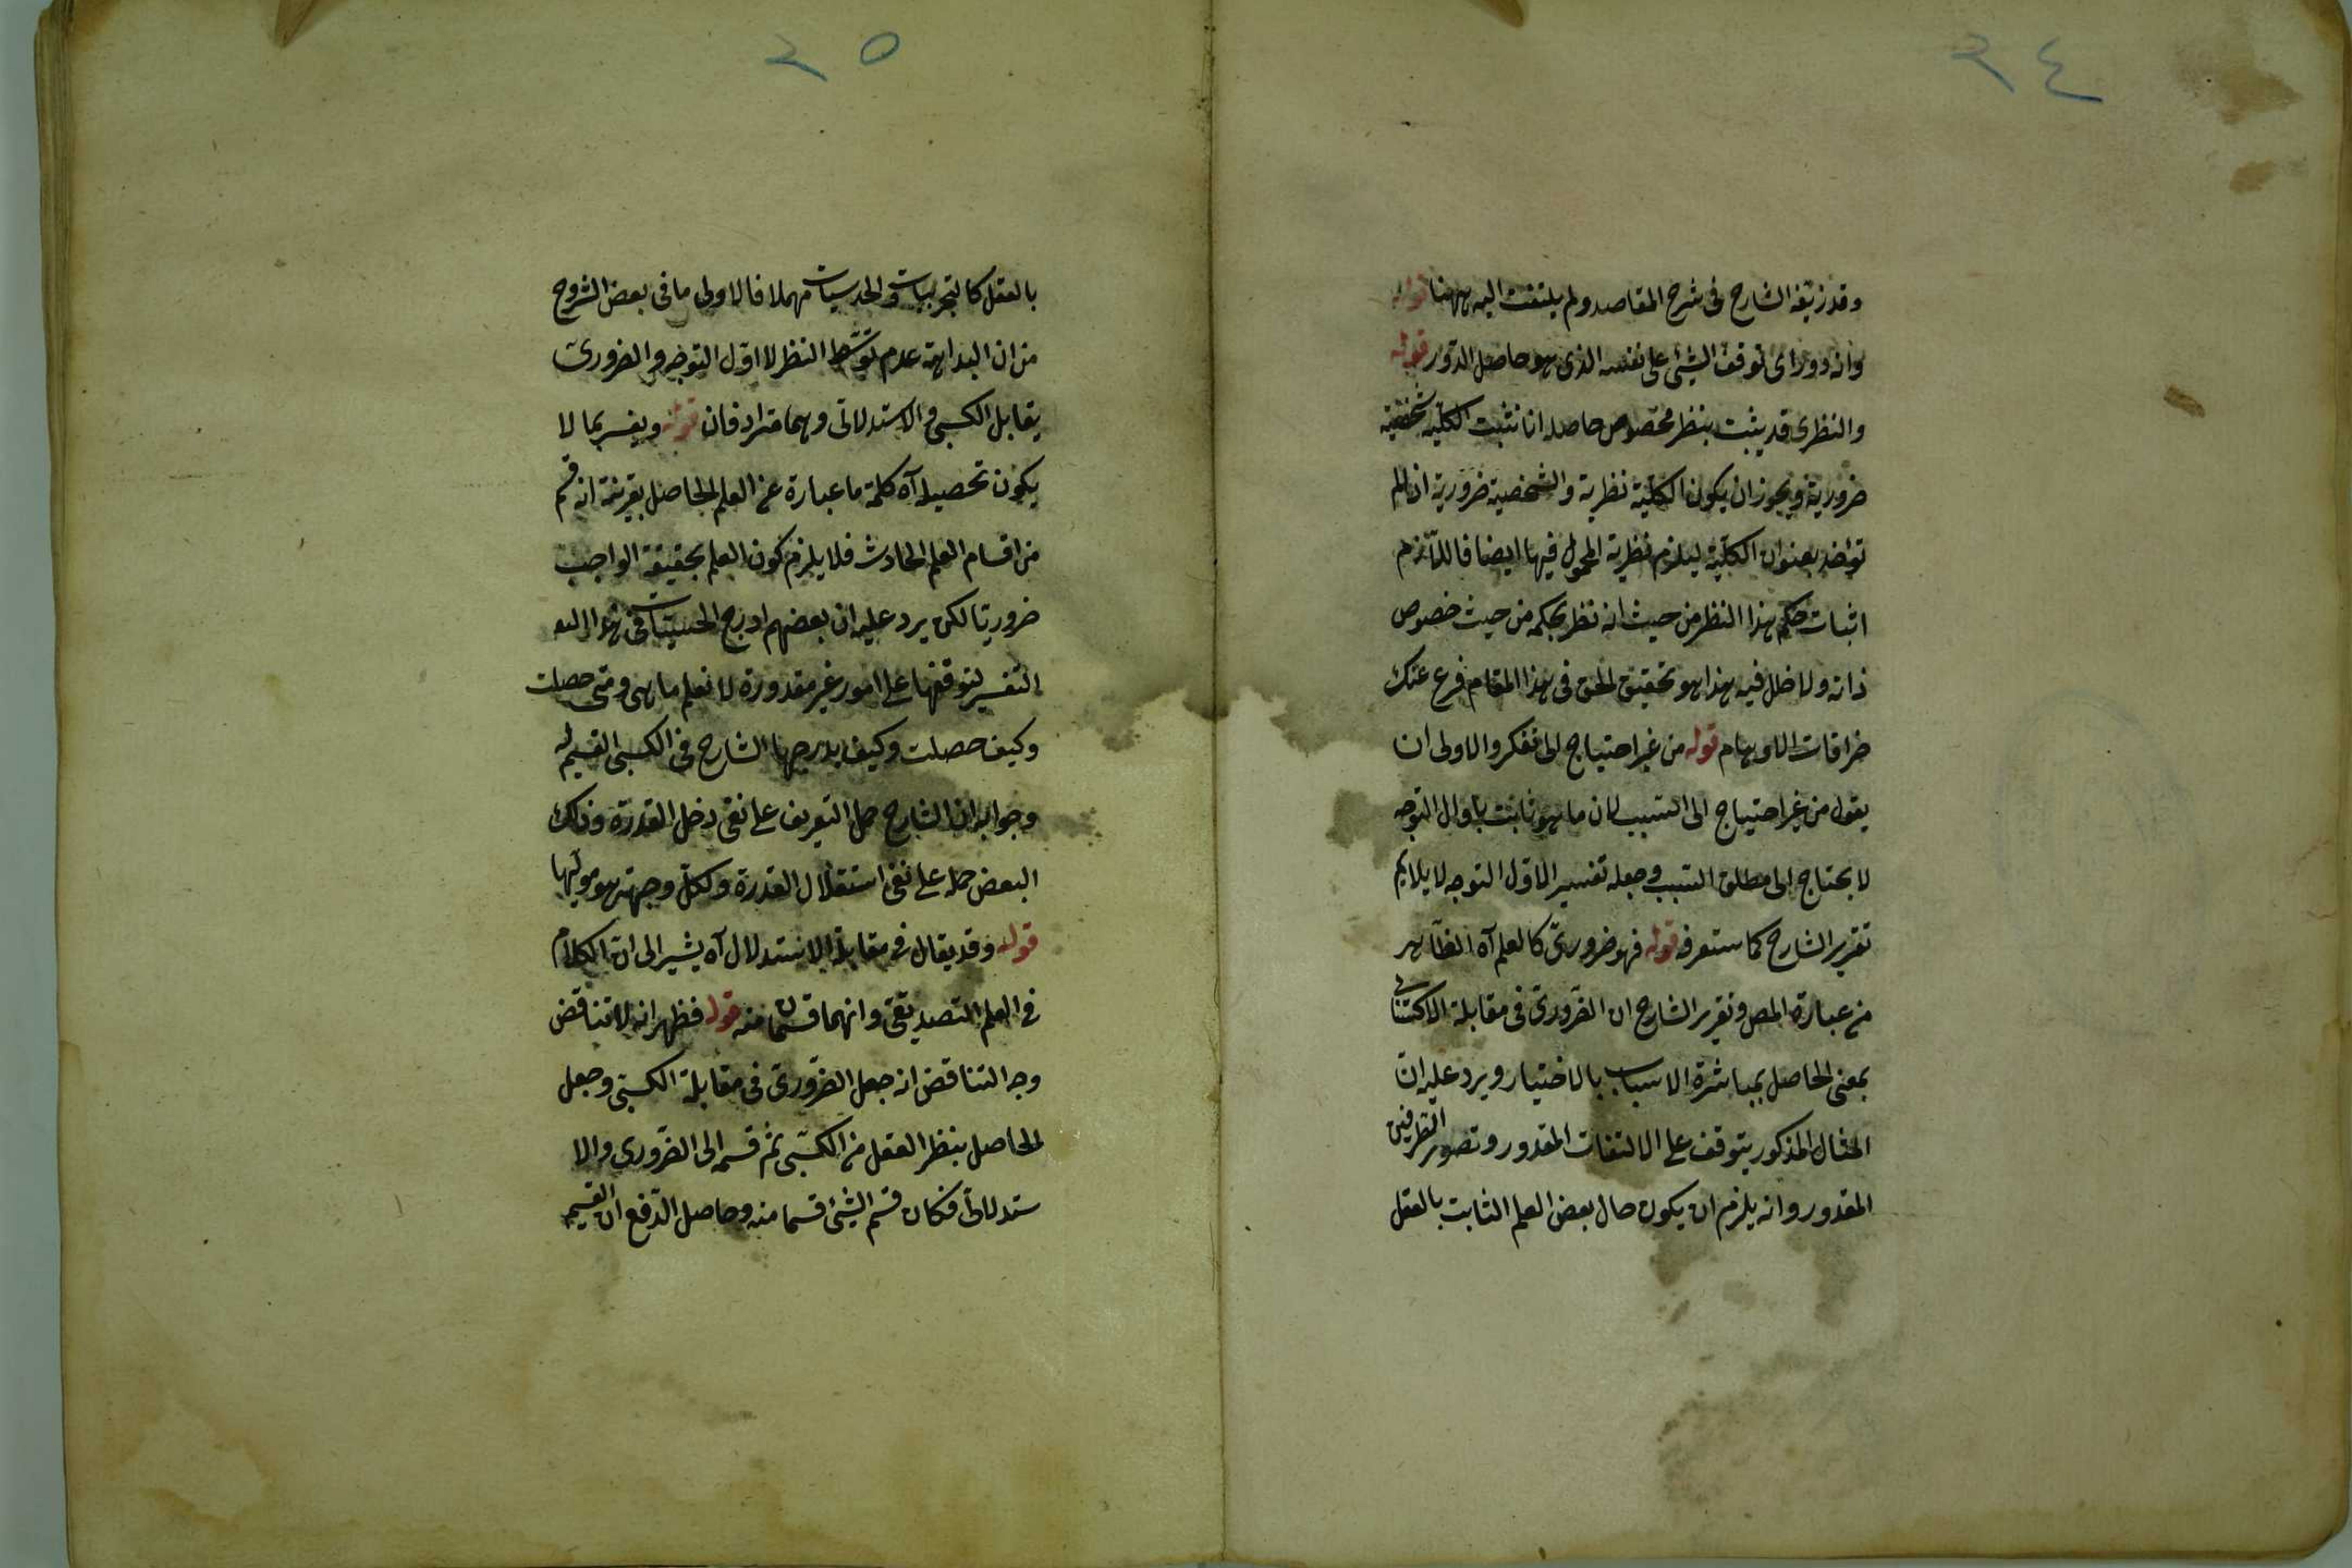 ٢٤
وقد زيفه الشارح فى شرح المقاصد ولم يلتفت اليه ههنا قوله
وانه دور اى توقف الشئ على نفسه الذى هو حاصل الدّور قوله
والنظرى قد يثبت بنظر مخصوص حاصله انا نثبت الكلّية بشخصية
ضرورية ويجوز ان يكون الكلّية نظرية والشخصية ضرورية اذ لم
تؤخذ بعنوان الكلّية ليلزم نظرية المحمول فيها ايضا فاللّازم
اثبات حكم هذا النظر من حيث انه نظر بحكمه من حيث خصوص
ذاته ولا خلل فيه هذا هو تحقيق الحق فى هذا المقام فرع عنك
خرافات الاوهام قوله من غير احتياج الى تفكر والاولى ان
يقول من غير احتياج الى السبب لان ما هو ثابت باول التوجه
لا يحتاج الى مطلق السبب وجعله تفسير الاول التوجه لا يلايم
تقرير الشارح كما ستعرفه قوله فهو ضرورىّ كالعلم آه الظّاهر
من عبارة المص وتقرير الشارح ان الضّرورى فى مقابلة الاكتسابى
بمعنى الحاصل بمباشرة الاسباب بالاختيار ويرد عليه ان
المثال المذكور يتوقف على الالتفات المقدور وتصور الطرفين
المقدور وانه يلزم ان يكون حال بعض العلم الثابت بالعقل
٢٥
بالعقل كالتجربيات والحدسيات مهملا فالاولى ما فى بعض الشروح
من ان البداهة عدم توسّط النظر لا اوّل التوجه والضرورىّ
يقابل الكسبى والاستدلالى وهما مترادفان قوله ويفسر بما لا
يكون تحصيله آه كلمة ما عبارة عن العلم الحاصل بقرينة انه قسم
من اقسام العلم الحادث فلا يلزم كون العلم بحقيقة الواجب
ضروريّا لكن يرد عليه ان بعضهم ادرج الحسيّات فى هذا
التفسير لتوقفها على امور غير مقدورة لا نعلم ما هى ومتى حصلت
وكيف حصلت وكيف يدرجها الشارح فى الكسبى القسيم له
وجوابه ان الشارح حمل التعريف على نفى دخل القدرة وذلك
البعض حمله على نفى استقلال القدرة ولكل وجهة هو موليها
قوله وقد يقال فى مقابلة الاستدلال آه يشير الى انّ الكلام
فى العلم التصديقى وانهما قسمان منه قوله فظهر انه لا تناقض
وجه التناقض انه جعل الضّرورىّ فى مقابلة الكسبى وجعل
الحاصل بنظر العقل من الكسبّى ثم قسمه الى الضّرورى والا
ستدلالى فكان قسم الشئ قسما منه وحاصل الدّفع ان القسيم